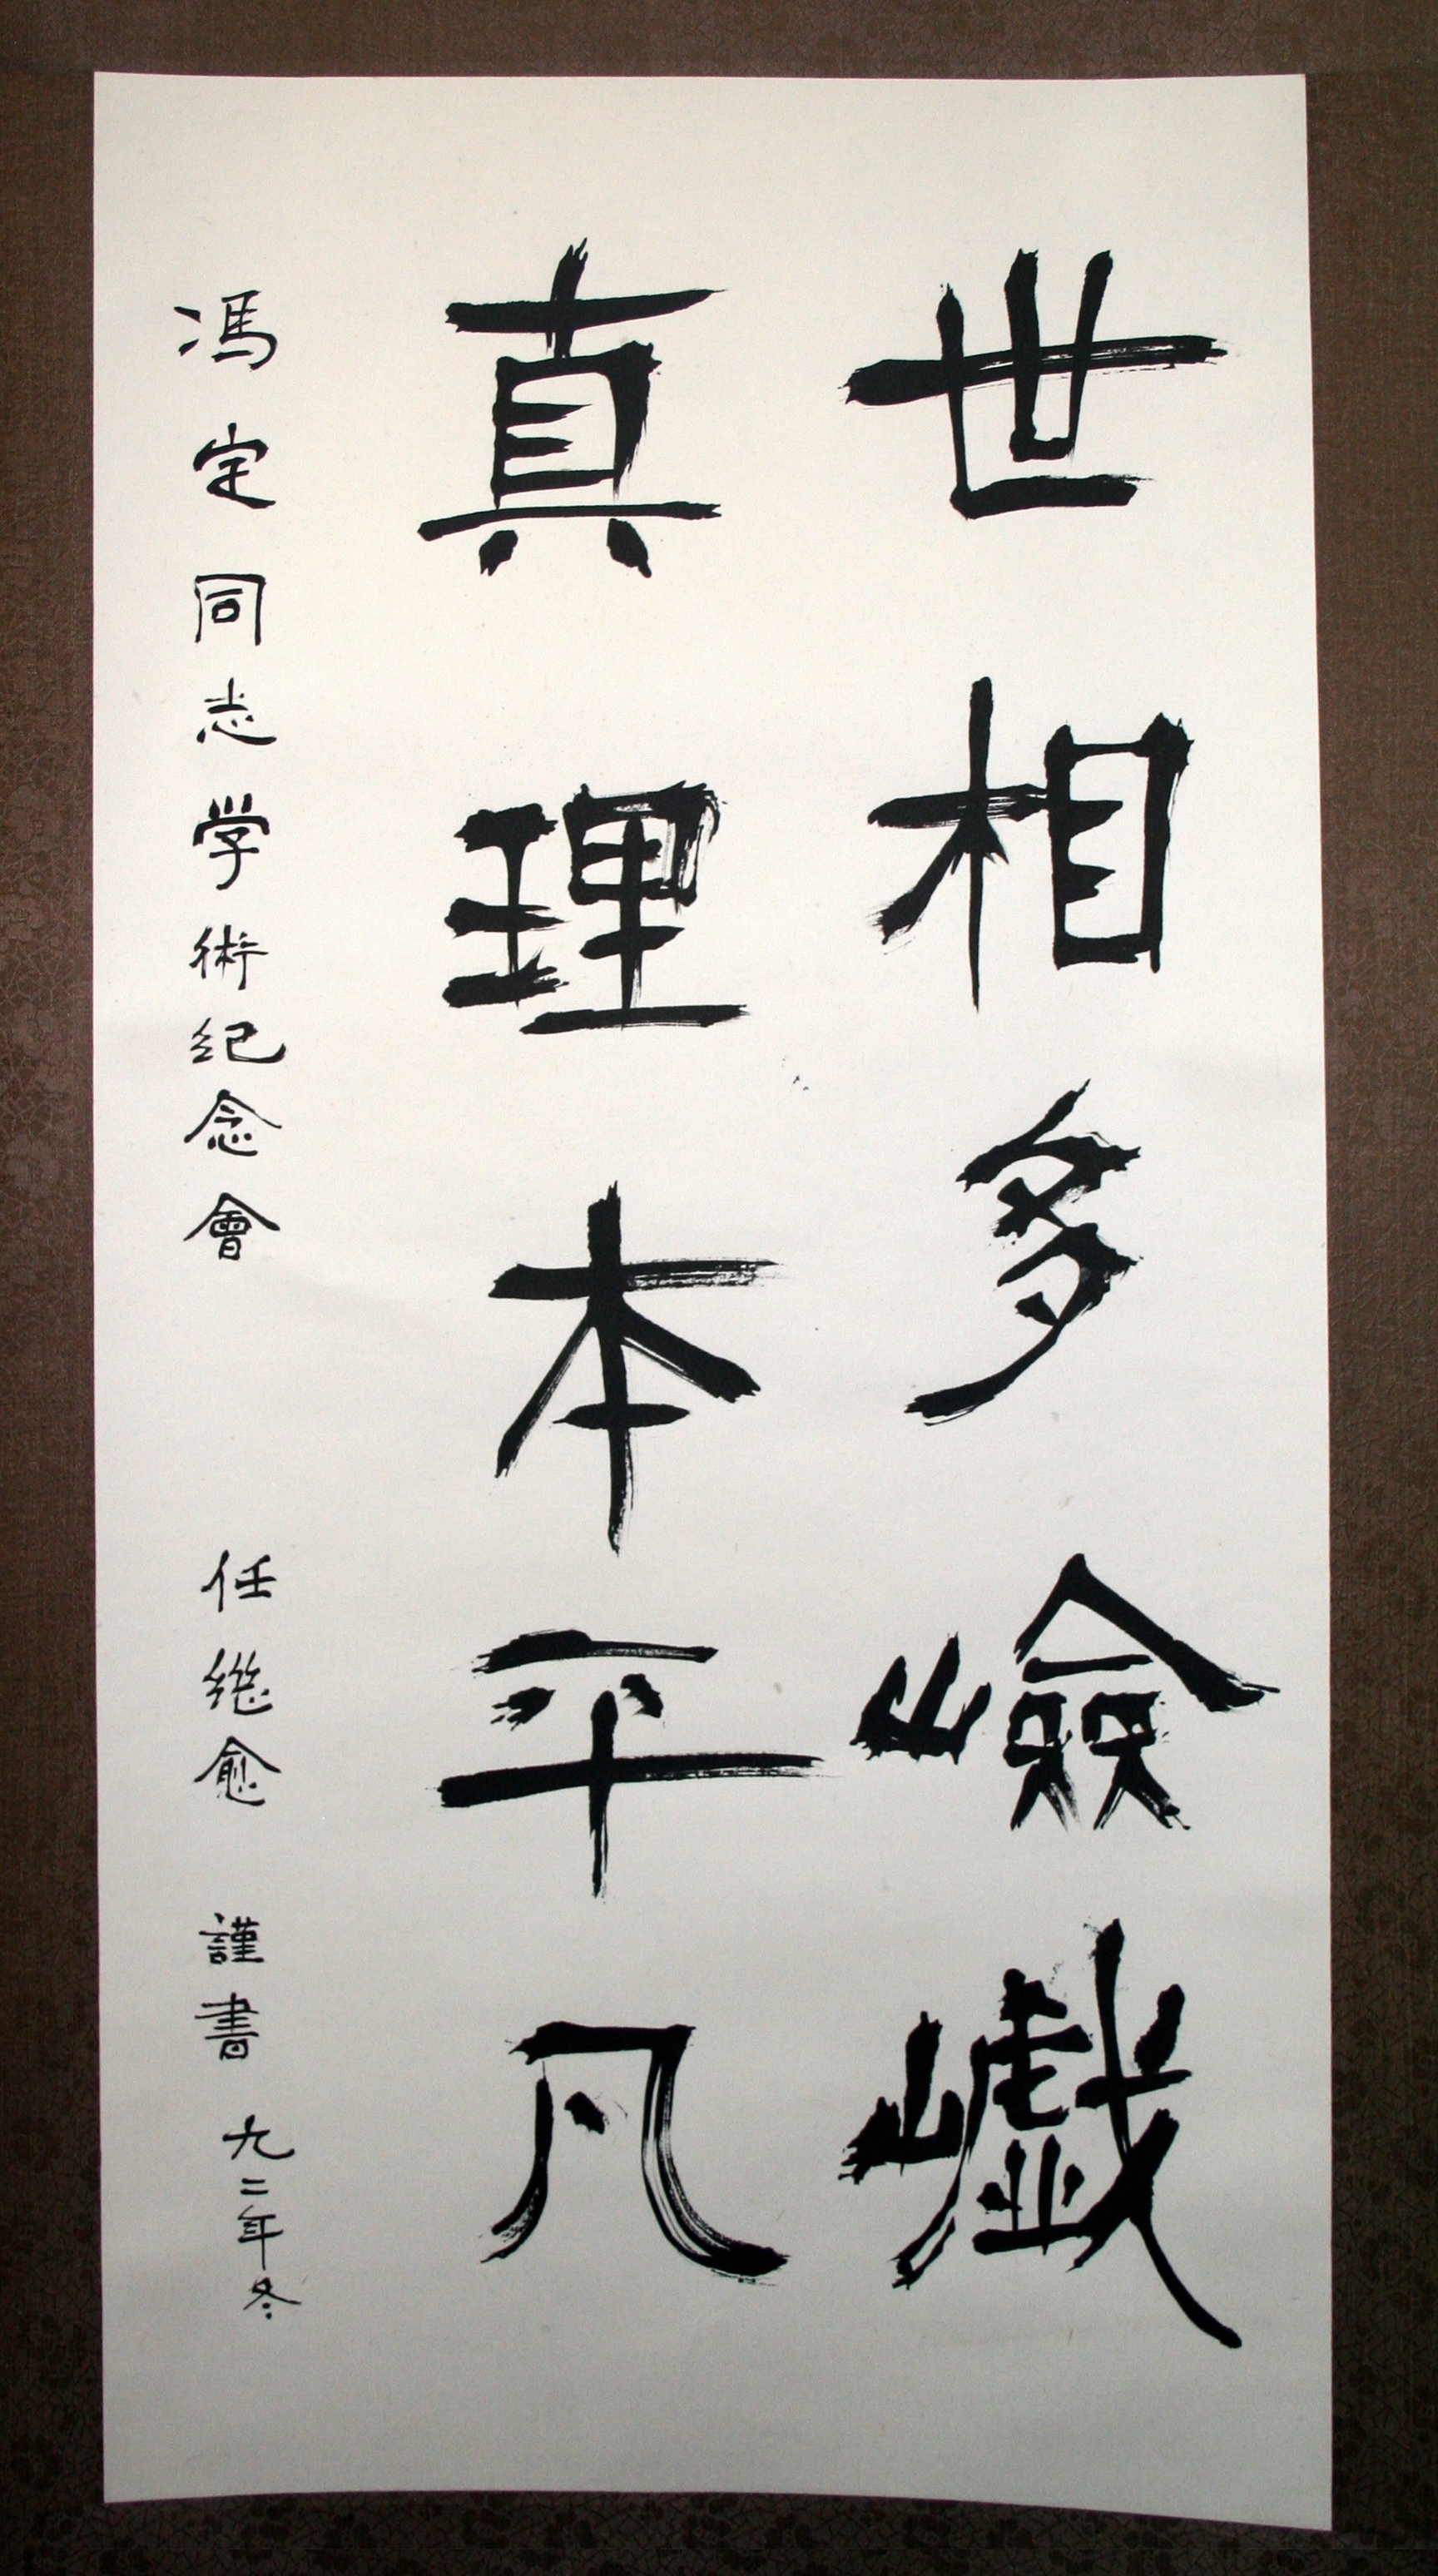 世相多嶮巇
真理本平凡
冯定同志学術纪念會 任继愈 謹書 九二年冬